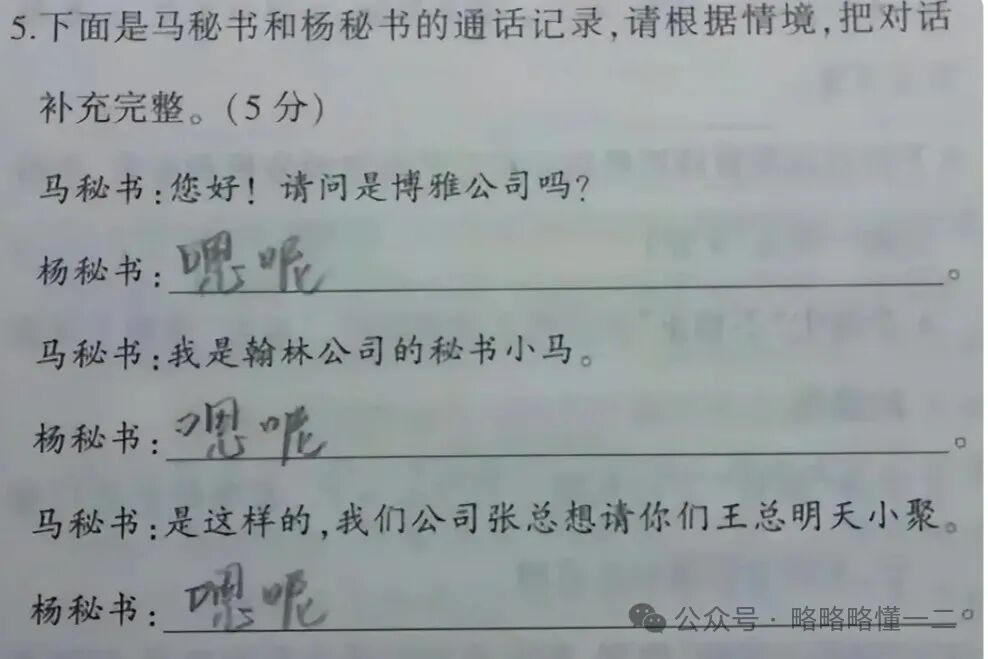 5.下面是马秘书和杨秘书的通话记录,请根据情境,把对话
补充完整。(5分)
马秘书:您好!请问是博雅公司吗?
杨秘书:嗯呢。
马秘书:我是翰林公司的秘书小马。
杨秘书:嗯呢。
马秘书:是这样的,我们公司张总想请你们王总明天小聚。
杨秘书:嗯呢。
公众号·略略略懂一二